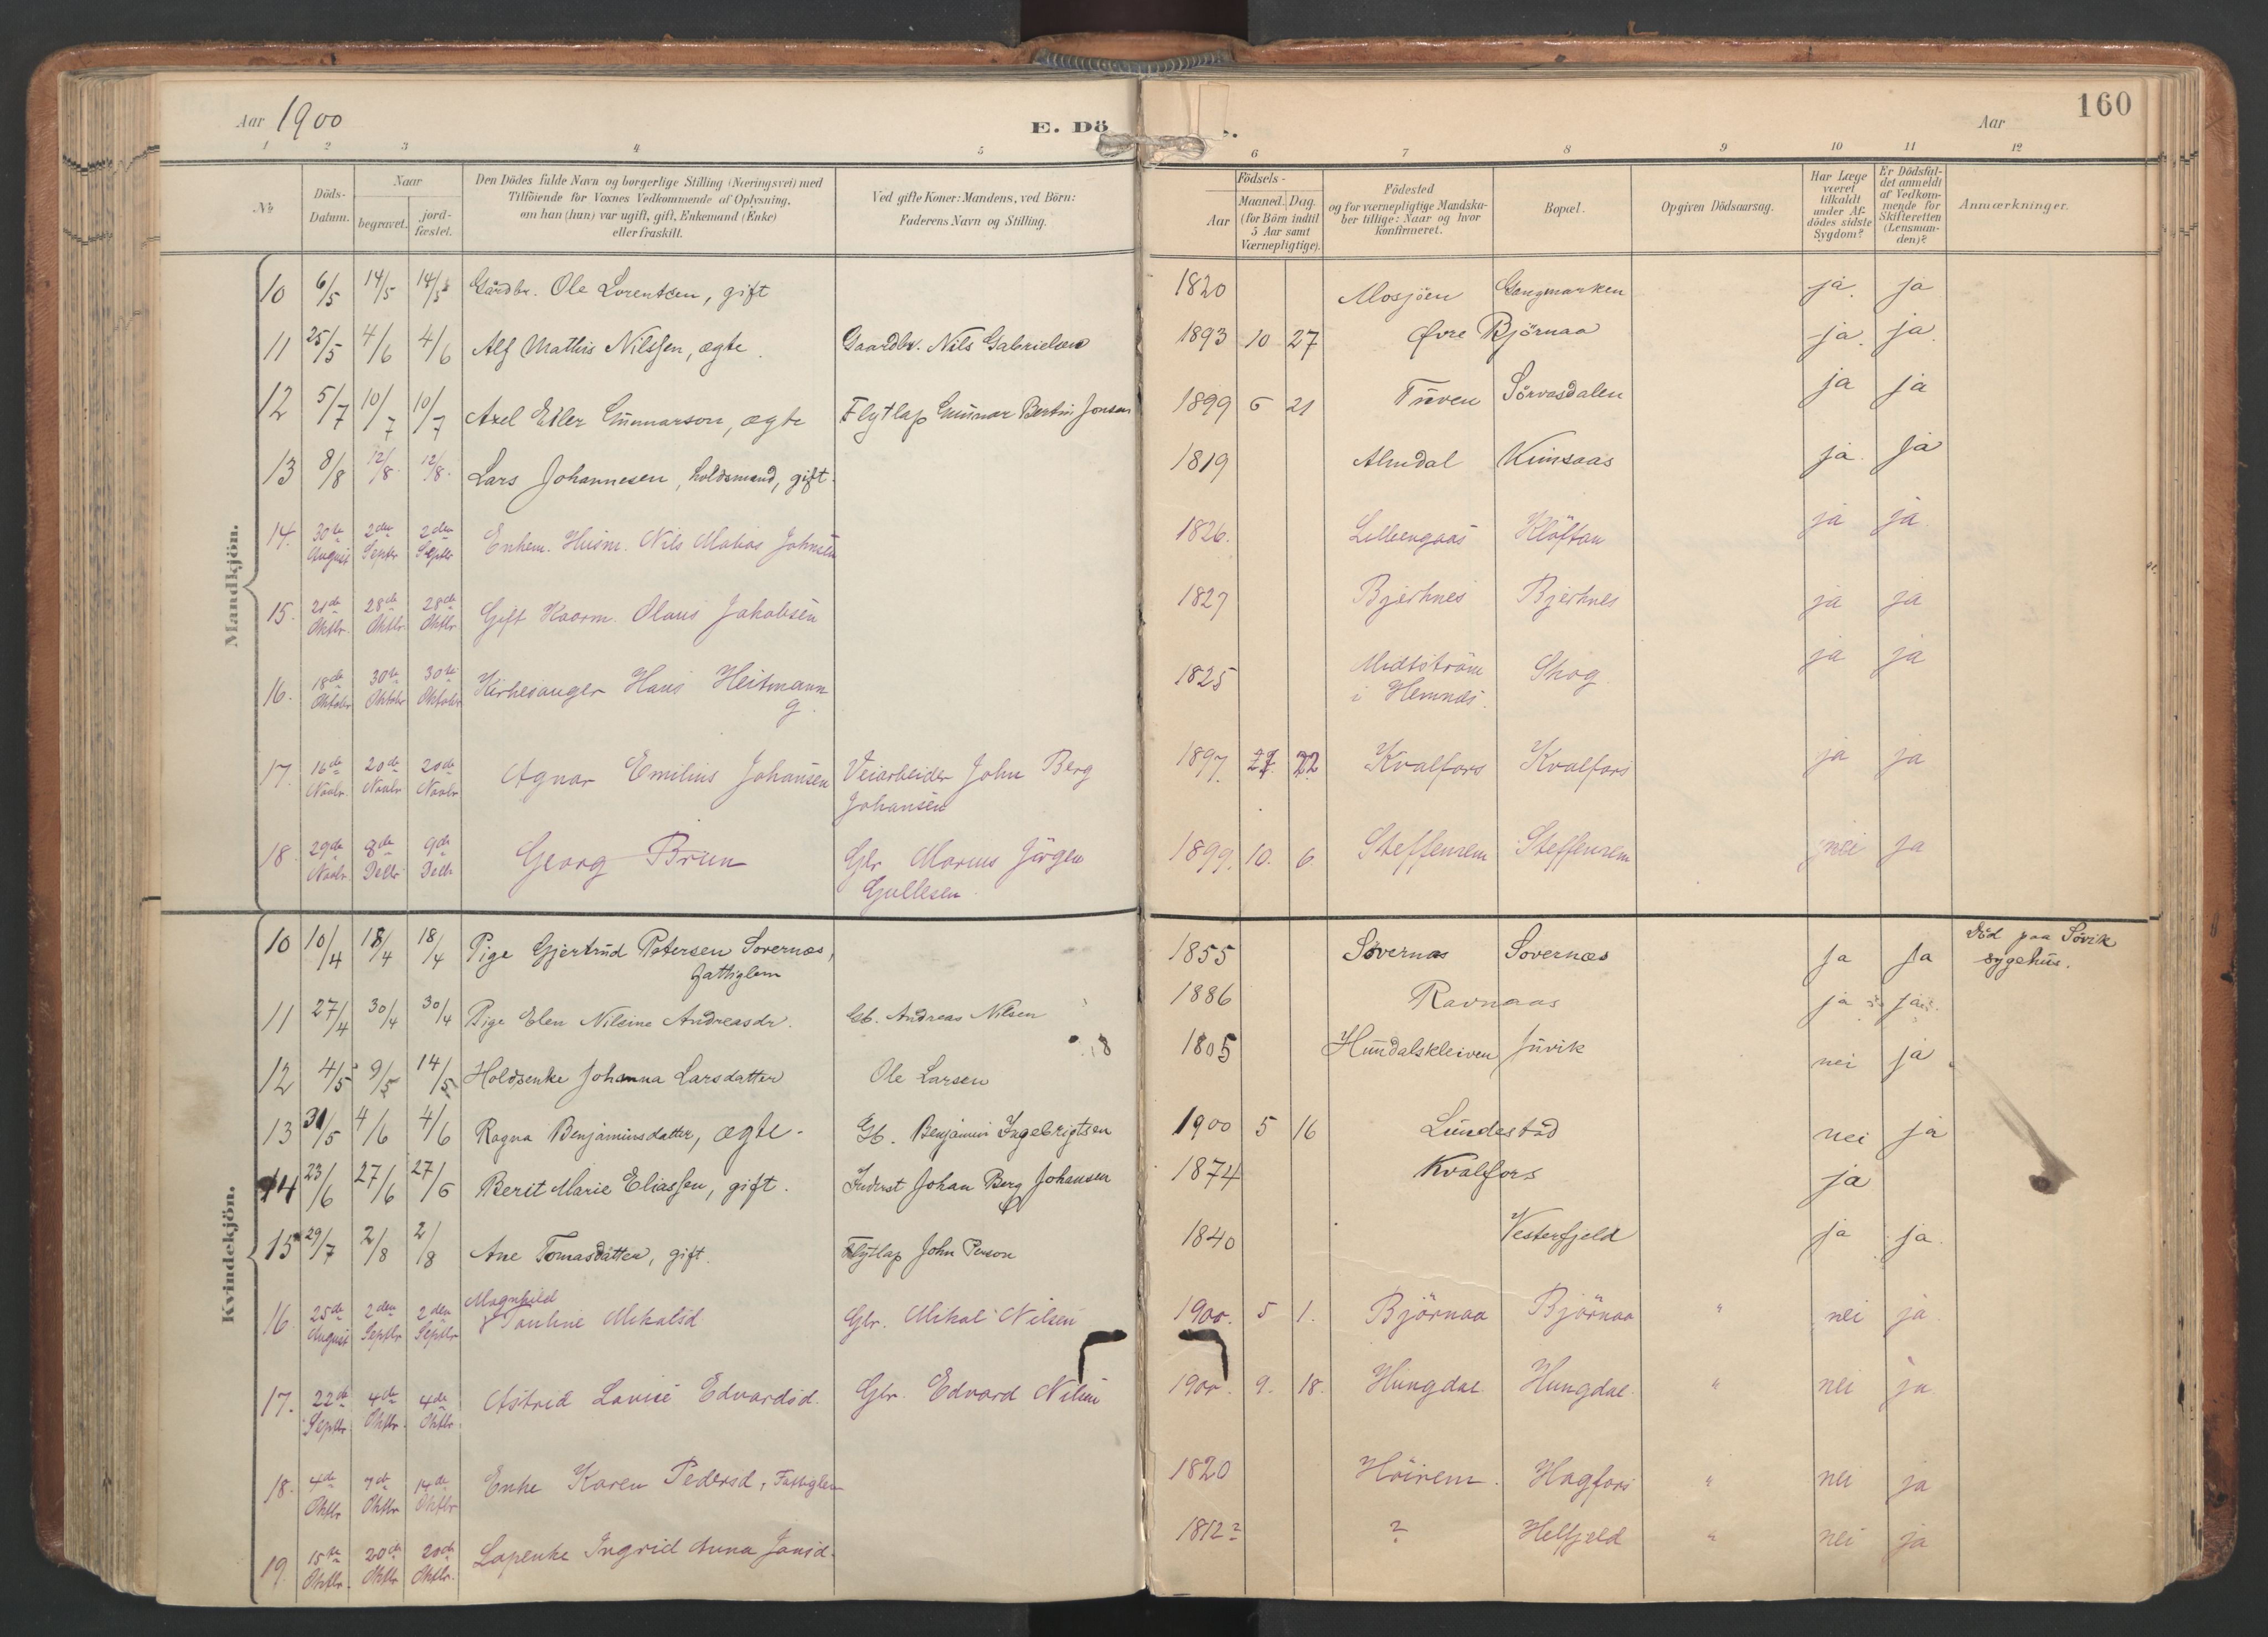 Aar 1900
E. Dö
Aar
160
1 2 3 4 5 6 7 8 9 10 11 12
№
Döds-Datum.
Naar
begravet.
jord-fæstet.
Den Dödes fulde Navn og borgerlige Stilling (Næringsvei) med
Tilföiende for Voxnes Vedkommende af Oplysning,
om han (hun) var ugift, gift, Enkemand (Enke)
eller fraskilt.
Ved gifte Koner: Mandens, ved Börn:
Faderens Navn og Stilling.
Födsels-
Aar
Maaned. Dag.
(for Börn indtil
5 Aar samt
Værnepligtige).
Födested
og for værnepligtige Mandska-
ber tillige: Naar og hvor
konfirmeret.
Bopæl.
Opgiven Dödsaarsag.
Har Læge
været
tilkaldt
under Af-
dödes sidste
Sygdom?
Er Dödsfal-
det anmeldt
af Vedkom-
mende for
Skifteretten
(Lensman-
den)?
Anmærkninger.
Mandkjön.
10 6/5 14/5 14/5 Gårdbr. Ole Lorentsen, gift 1820 Mosjöen Gangmarken ja. ja
11 25/5 4/6 4/6 Alf Mathis Nilssen, ægte. Gaardbr. Nils Gabrielsen 1893 10 27 Øvre Björnaa ja. ja.
12 5/7 10/7 10/7 Axel Edler Gunnarson, ægte Flytlap Gunnar Bertin Jonsen 1899 6 21 Tuven Sörvasdalen ja ja
13 8/8 12/8. 12/8. Lars Johannesen, holdsmand, gift. 1819 Almdal Kunsaas ja. ja
14. 30te August 2den Septbr 2den Septbr Enkem. Husm. Nils Matias Johnsen 1826. Lillengaas Klöftan ja ja.
15. 21de Oktbr. 28de Oktbr. 28de Oktbr. Gift Kaarm. Olaus Jakobsen 1827 Bjerknes Bjerknes ja ja
16. 18de Oktober 30te Oktober 30te Oktober Kirkesanger Hans Heitmann
g. 1825 Midtström
i Hemnæs. Skog. ja ja
17. 16de Novbr. 20de Novbr 20de Novbr Agnar Emilius Johansen Veiarbeider John Berg
Johansen 1897. 22 Kvalfors Kvalfors ja ja
18. 29de Novbr. 8de Decbr 9de Decbr Georg Brun Gbr. Marius Jörgen
Gullesen. 1899. 10. 6. Steffenrem Steffenrem nei ja
Kvindekjön.
10 10/4 18/4 18/4 Pige Gjertrud Petersen Sovernæs,
fattiglem 1855 Sövernæs Sovernæs Ja Ja Död paa Sövik
sygehus.
11 27/4 30/4 30/4 Pige Elen Nilsine Andreasdr. Gb. Andreas Nilsen 1886 Ravnaas ja ja
12 4/5 9/5 14/5 Holdsenke Johanna Larsdatter Ole Larsen 1805 Hundalskleiven Juvik nei ja
13 31/5 4/6 4/6 Ragna Benjaminsdatter, ægte. Gb. Benjamin Ingebrigtsen 1900 5 16 Lundestad nei ja
14 23/6 27/6 27/6 Berit Marie Eliassen, gift. Inderst Johan Berg Johansen 1874 Kvalfors ja
15 29/7 2/8 2/8 Ane Tomasdatter, gift. Flytlap John Person 1840 Vesterfjeld ja ja.
16. 25de August 2den Septbr 2den Septbr Magnhild
Pauline Mikalsd. Gbr. Mikal Nilsen 1900. 5 1. Björnaa Björnaa " nei ja
17. 22de Septbr 4de Oktbr. 4de Oktbr. Astrid Lovise Edvardsd. Gbr. Edvard Nilsen 1900. 9. 18. Hungdal. Hungdal. " nei ja
18. 4de Oktbr 7de Oktbr 14de Oktbr Enke Karen Pedersd. Fattiglem 1820 Höirem. Hagfors " nei ja
19. 15de Oktbr. 20de Oktbr. 20de Oktbr. Lapenke Ingrid Anna Jonsd. 1812? ? Helfjeld " nei ja